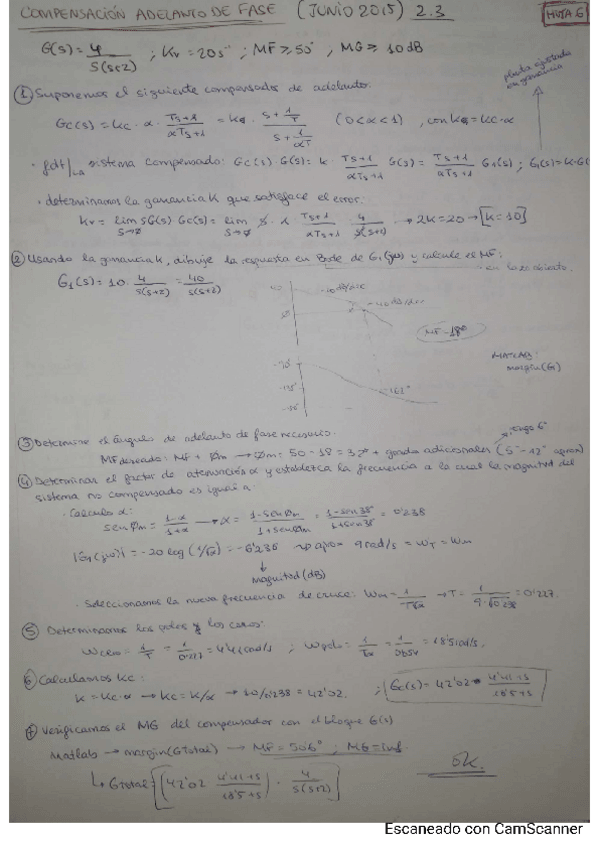 COMPENSACIÓN ADELANTO DE FASE (JUNIO 2015) 2.3 HOJA 6
G(s) = 4 / s(s+2) ; Kv = 20s⁻¹ ; MF ≥ 50° , MG ≥ 10 dB
planta ajustada en ganancia
① Suponemos el siguiente compensador de adelanto.
Gc(s) = Kc · α · (Ts+1)/(αTs+1) = Kc · (s + 1/T)/(s + 1/αT) (0<α<1) , con K = Kc·α
· fdt sistema compensado: Gc(s) · G(s) = K · (Ts+1)/(αTs+1) G(s) = (Ts+1)/(αTs+1) G₁(s) ; G₁(s) = K·G(s)
· determinamos la ganancia K que satisface el error.
Kv = lim s→0 sG(s) Gc(s) = lim s→0 s · (Ts+1)/(αTs+1) · 4/s(s+2) → 2K = 20 → [K = 10]
② Usando la ganancia K, dibuje la respuesta en Bode de G₁(jω) y calcule el MF:
· en lazo abierto.
G₁(s) = 10 · 4/s(s+2) = 40/s(s+2)
-40 dB/dec
MF = 18°
MATLAB:
margin(G₁)
-162°
③ Determine el ángulo de adelanto de fase necesario.
tengo 6°
MF deseado: MF + Øm → Øm = 50 - 18 = 32° + grados adicionales (5° - 12° aprox)
④ Determinar el factor de atenuación α y establezca la frecuencia a la cual la magnitud del
sistema no compensado es igual a:
· Calculo α:
sen Øm = (1-α)/(1+α) → α = (1 - sen Øm)/(1 + sen Øm) = (1 - sen 38°)/(1 + sen 38°) = 0'238
|G₁(jω)| = -20 log (1/√α) = -6'236 → aprox 9 rad/s = ωT = ωm
magnitud (dB)
· Seleccionamos la nueva frecuencia de cruce: ωm = 1/T√α → T = 1/(9·√0'238) = 0'227.
⑤ Determinamos los polos y los ceros:
ωcero = 1/T = 1/0'227 = 4'41 rad/s ; ωpolo = 1/Tα = 1/0'054 = 18'5 rad/s.
⑥ Calculamos Kc:
K = Kc·α → Kc = K/α → 10/0'238 = 42'02. ; Gc(s) = 42'02 · (4'41+s)/(18'5+s)
⑦ Verificamos el MG del compensador con el bloque G(s)
Matlab → margin(GTotal) → MF = 50'6° ; MG = inf.
GTotal = [42'02 (4'41+s)/(18'5+s) · 4/s(s+2)]
ok.
Escaneado con CamScanner